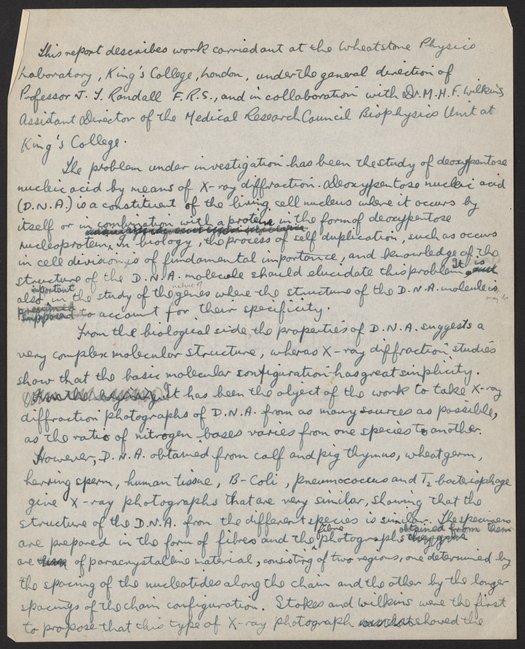 This report describes work carried out at the Wheatstone Physics
Laboratory, King's College, London, under the general direction of
Professor J. T. Randall F.R.S., and in collaboration with Dr. M.H.F. Wilkins
Assistant Director of the Medical Research Council Biophysics Unit at
King's College.
The problem under investigation has been the study of deoxypentose
nucleic acid by means of X-ray diffraction. Deoxypentose nucleic acid
(D.N.A.) is a constituent of the living cell nucleus where it occurs by
itself or in combination with a protein in the form of deoxypentose
nucleoprotein. In biology, the process of self duplication, such as occurs
in cell division is of fundamental importance, and knowledge of the
structure of the D.N.A. molecule should elucidate this problem It is
also important in the study of the nature of genes where the structure of the D.N.A. molecule is
supposed to account for their specificity.
From the biological side the properties of D.N.A. suggests a
very complex molecular structure, wheras X-ray diffraction studies
show that the basic molecular configuration has great simplicity.
It has been the object of the work to take X-ray
diffraction photographs of D.N.A. from as many sources as possible,
as the ratio of nitrogen-bases varies from one species to another.
However, D.N.A. obtained from calf and pig thymus, wheat germ,
herring sperm, human tissue, B-Coli, pneumococcus and T2 bacteriophage
give X-ray photographs that are very similar, showing that the
structure of the D.N.A. from the different species is similar. The specimens
are prepared in the form of fibres and the fibre photographs obtained from them
are of paracrystalline material, consisting of two regions, one determined by
the spacing of the nucleotides along the chain and the other by the longer
spacings of the chain configuration. Stokes and Wilkins were the first
to propose that this type of X-ray photograph showed the